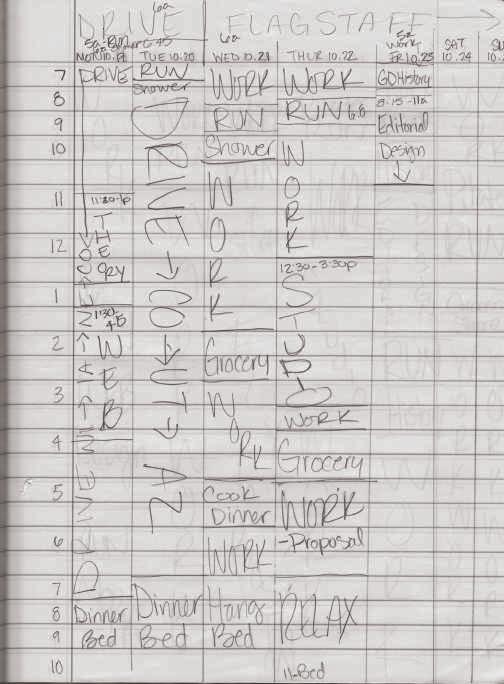 DRIVE 6a FLAGSTAFF →
5a-Run 6a 5a
Shower 6:45 Work
MON 10.19 TUE 10.20 WED 10.21 THUR 10.22 FRI 10.23 SAT SU
10.24 10.2
7 DRIVE RUN WORK WORK GD History
Shower
8 8:15-11a
RUN RUN 6.8
9 Editorial
10 Shower Design
DRIVE → CO → UT → AZ
WORK
WORK
11 11:30-1p
THEORY
12
12:30-3:30p
STUDIO
1 1:30-
4:15
WEB
2 Grocery
3 WORK
WORK
4 Grocery
5 Cook
Dinner WORK
6 WORK -Proposal
7
8 Dinner Dinner Hang RELAX
9 Bed Bed Bed
10 11-Bed